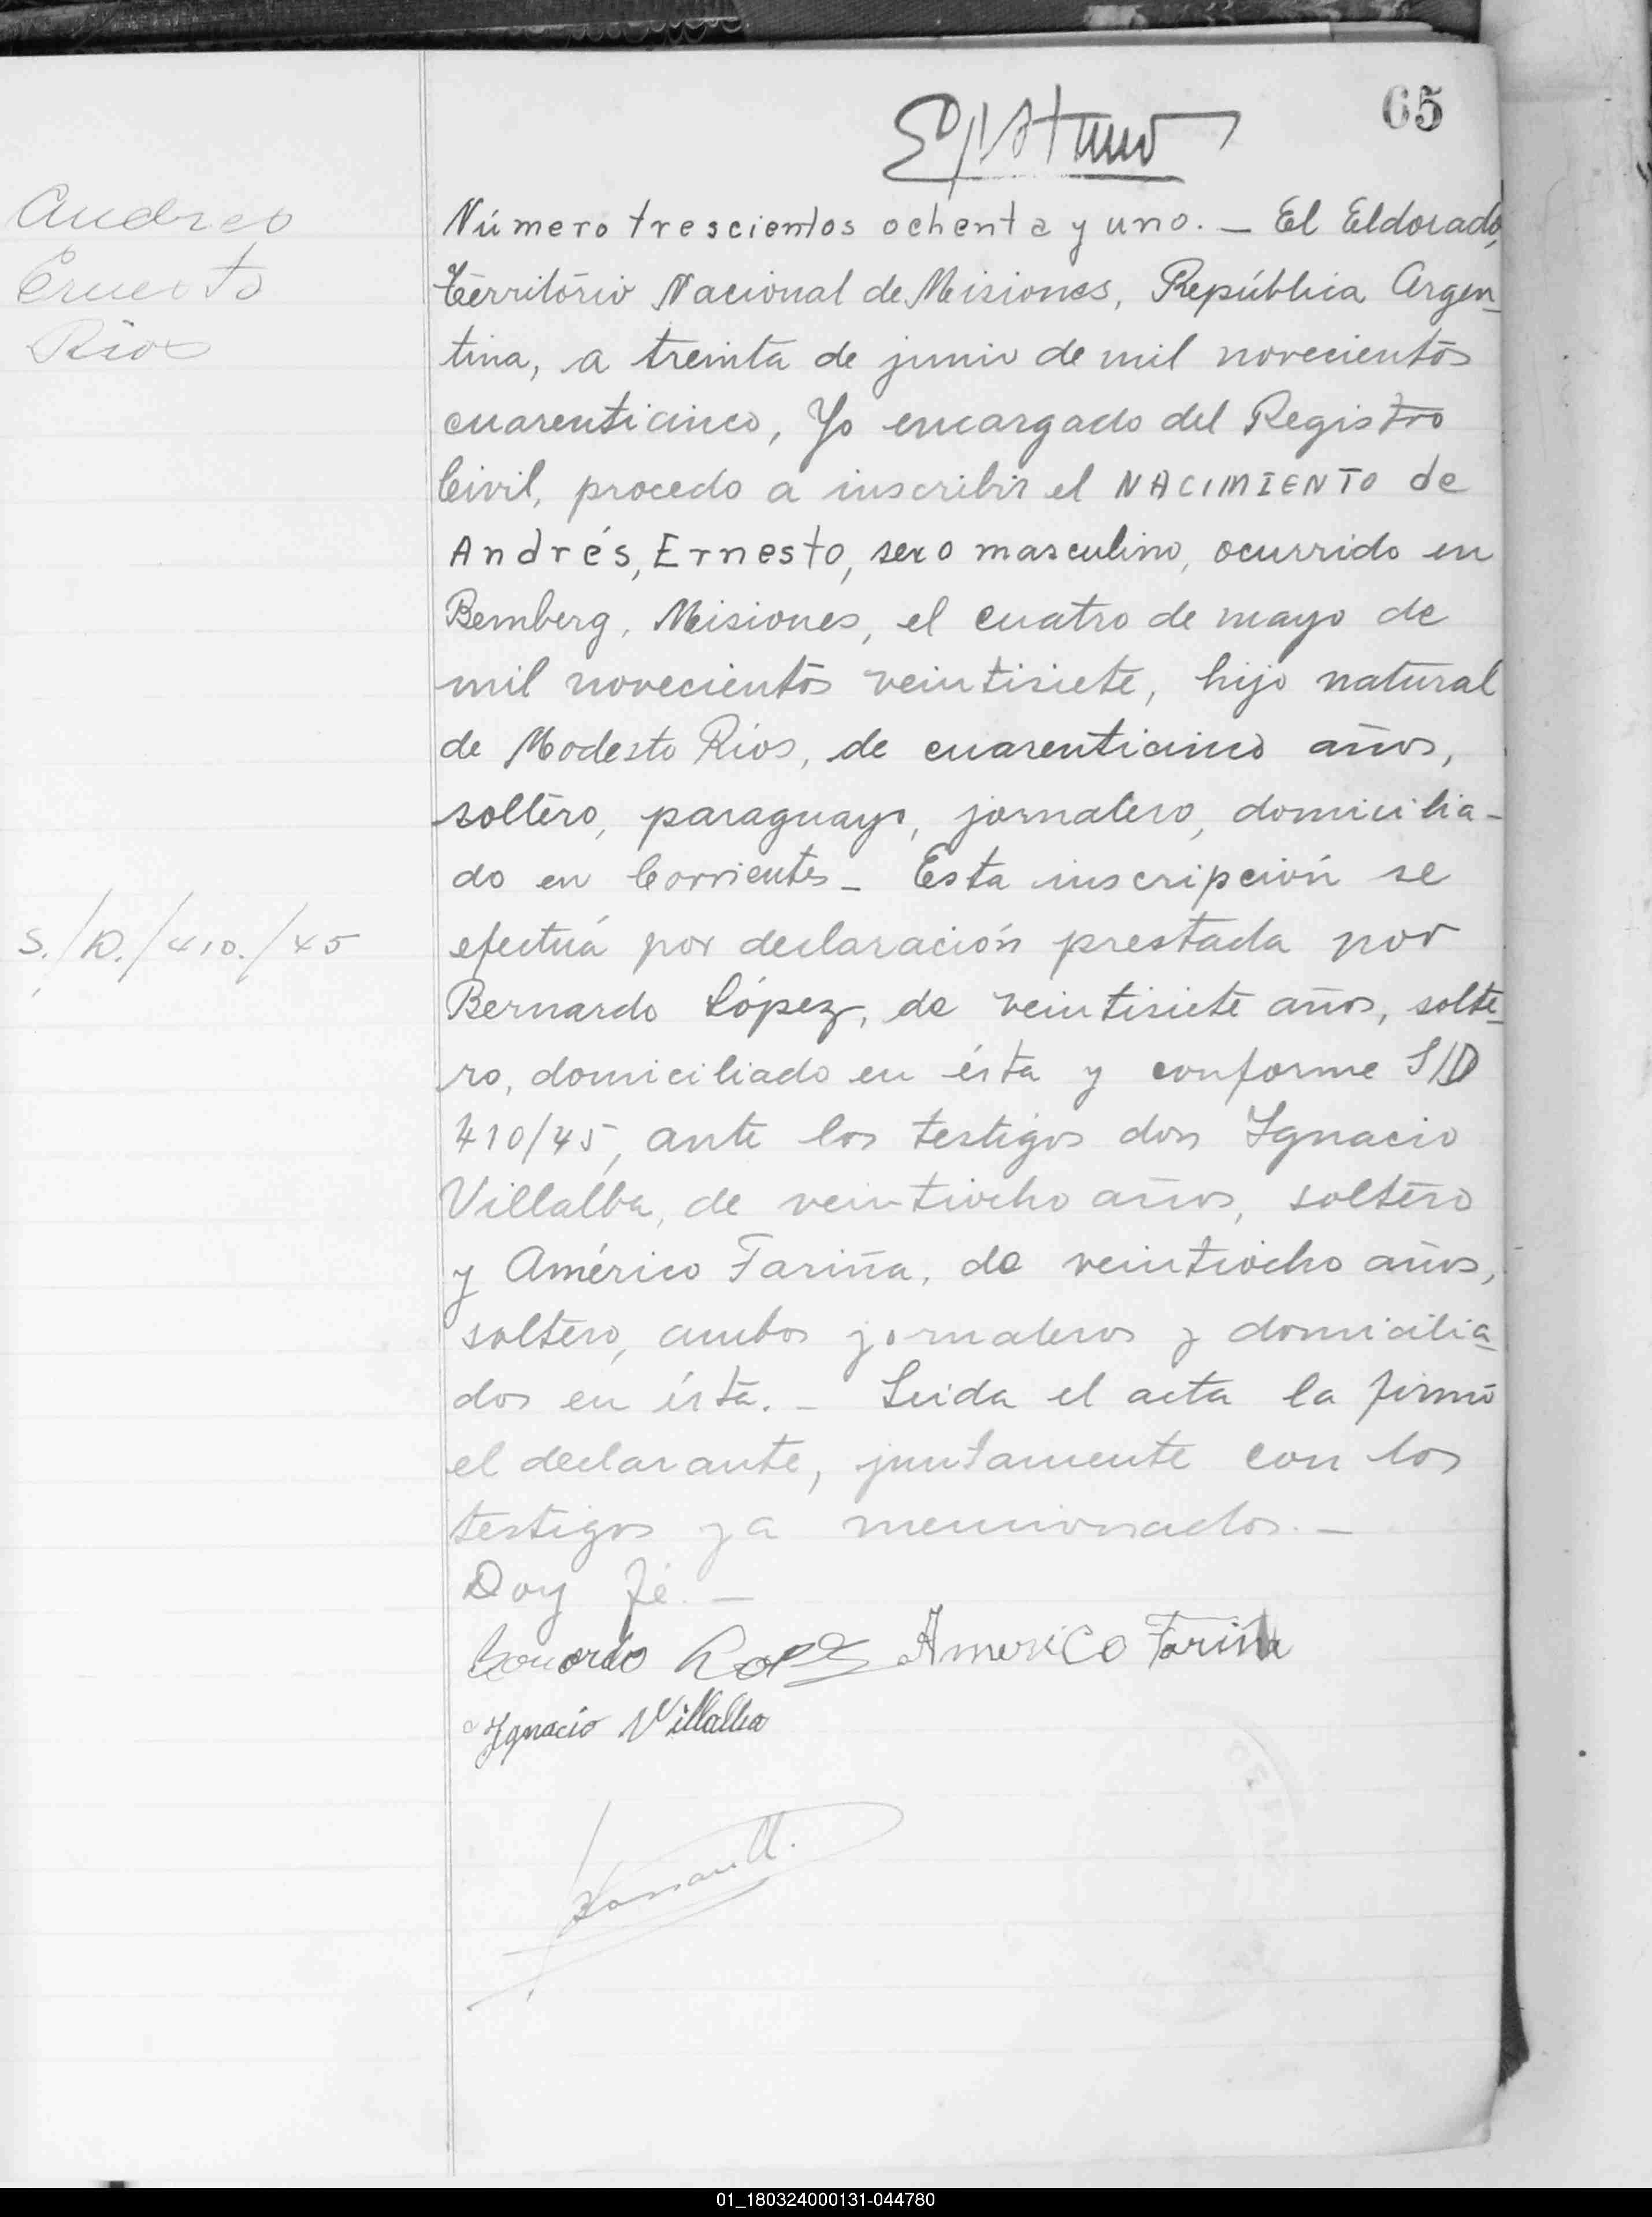 65
Andres
Ernesto
Rios
Número trescientos ochenta y uno. — El Eldorado,
Território Nacional de Misiones, República Argen-
tina, a treinta de junio de mil novecientos
cuarenticinco, Yo encargado del Registro
Civil, procedo a inscribir el NACIMIENTO de
Andrés, Ernesto, sexo masculino, ocurrido en
Bemberg, Misiones, el cuatro de mayo de
mil novecientos veintisiete, hijo natural
de Modesto Rios, de cuarenticinco años,
soltero, paraguayo, jornalero, domicilia-
do en Corrientes — Esta inscripción se
efectuá por declaración prestada por
S./D./410./45
Bernardo López, de veintisiete años, solte-
ro, domiciliado en ésta y conforme S/D
410/45, ante los testigos don Ignacio
Villalba, de veintiocho años, soltero
y Américo Fariña, de veintiocho años,
soltero, ambos jornaleros y domicilia-
dos en ésta. — Leida el acta la firmó
el declarante, juntamente con los
testigos ya mencionados. —
Doy fé. —
Bernardo Lopez Americo Fariña
Ignacio Villalba
01_180324000131-044780